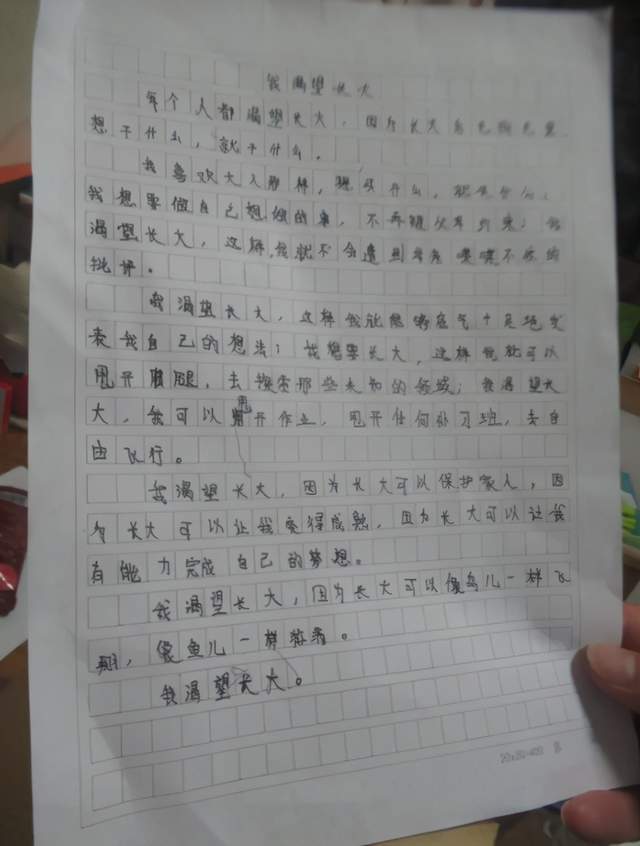 我渴望长大
每个人都渴望长大，因为长大后无拘无束，
想干什么，就干什么。
我喜欢大人那样，想买什么，就买什么；
我想要做自己想做的事，不再被父母约束；我
渴望长大，这样，我就不会遭到老老喋喋不休的
批评。
我渴望长大，这样我就能够底气十足地发
表我自己的想法；我想要长大，这样我就可以
甩开腿，去探索那些未知的领域；我渴望长
大，我可以甩开作业，甩开任何补习班，去自
由飞行。
我渴望长大，因为长大可以保护家人，因
为长大可以让我变得成熟，因为长大可以让我
有能力完成自己的梦想。
我渴望长大，因为长大可以像鸟儿一样飞
翔，像鱼儿一样游。
我渴望长大。
20×20=400